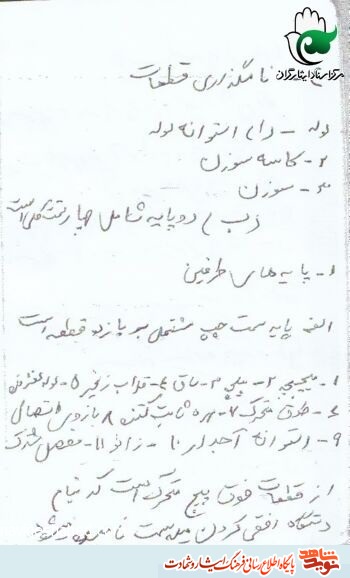 مرکز اسناد ایثارگران
نامگذاری قطعات
لوله - رام استوانه لوله
۲- کاسه سوزن
۳- سوزن
(ب) دو پایه شامل چهار قسمت کلی است
۱- پایه های طرفین
الف پایه سمت چپ مشتمل بر یازده قطعه است
۱- میخچه ۲- پیچ ۳- ساق ۴- قلاب زنجیر ۵- لوله
۶- طوق متحرک ۷- مهره ثابت کننده ۸ بازوی اتصال
۹- استوانه آجدار ۱۰- زانو ۱۱- مفصل مشترک
از قطعات فوق پیچ متحرک است که بنام
دستگاه افقی کردن میله سمت نامیده میشود
نوید شاهد پایگاه اطلاع رسانی فرهنگ ایثار و شهادت